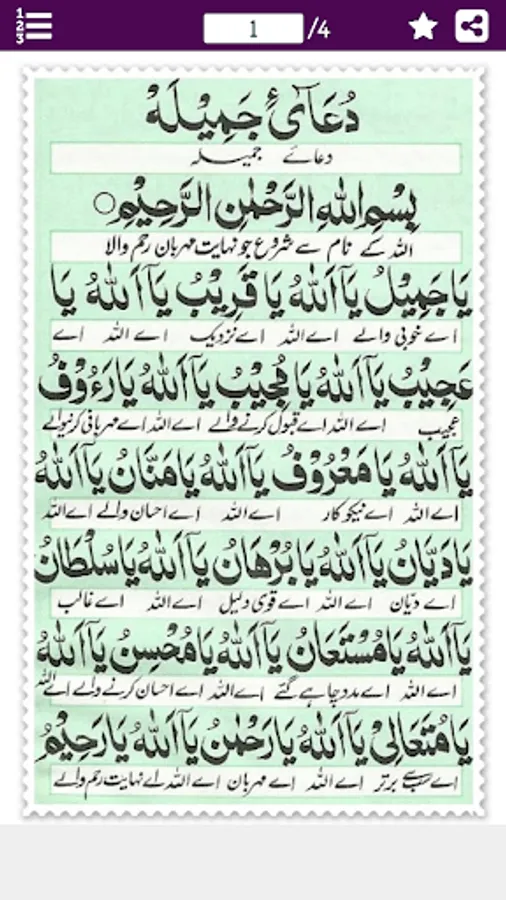 1 /4
دُعَآئِ جَمِيْلَهْ
دعائے جمیلہ
بِسْمِ اللهِ الرَّحْمٰنِ الرَّحِيْمِ
اللہ کے نام سے شروع جو نہایت مہربان رحم والا
يَا جَمِيْلُ يَآ اَللهُ يَا قَرِيْبُ يَآ اَللهُ يَا
اے خوبی والے اے اللہ اے نزدیک اے اللہ اے
عَجِيْبُ يَآ اَللهُ يَا مُجِيْبُ يَآ اَللهُ يَا رَءُوْفُ
عجیب اے اللہ اے قبول کرنے والے اے اللہ اے مہربانی کرنیوالے
يَآ اَللهُ يَا مَعْرُوْفُ يَآ اَللهُ يَا مَنَّانُ يَآ اَللهُ
اے اللہ اے نیکو کار اے اللہ اے احسان والے اے اللہ
يَا دَيَّانُ يَآ اَللهُ يَا بُرْهَانُ يَآ اَللهُ يَا سُلْطَانُ
اے دیّان اے اللہ اے قوی دلیل اے اللہ اے غالب
يَآ اَللهُ يَا مُسْتَعَانُ يَآ اَللهُ يَا مُحْسِنُ يَآ اَللهُ
اے اللہ اے مدد چاہے گئے اے اللہ اے احسان کرنے والے اے اللہ
يَا مُتَعَالِيْ يَآ اَللهُ يَا رَحْمٰنُ يَآ اَللهُ يَا رَحِيْمُ
اے سب سے برتر اے اللہ اے مہربان اے اللہ اے نہایت رحم والے